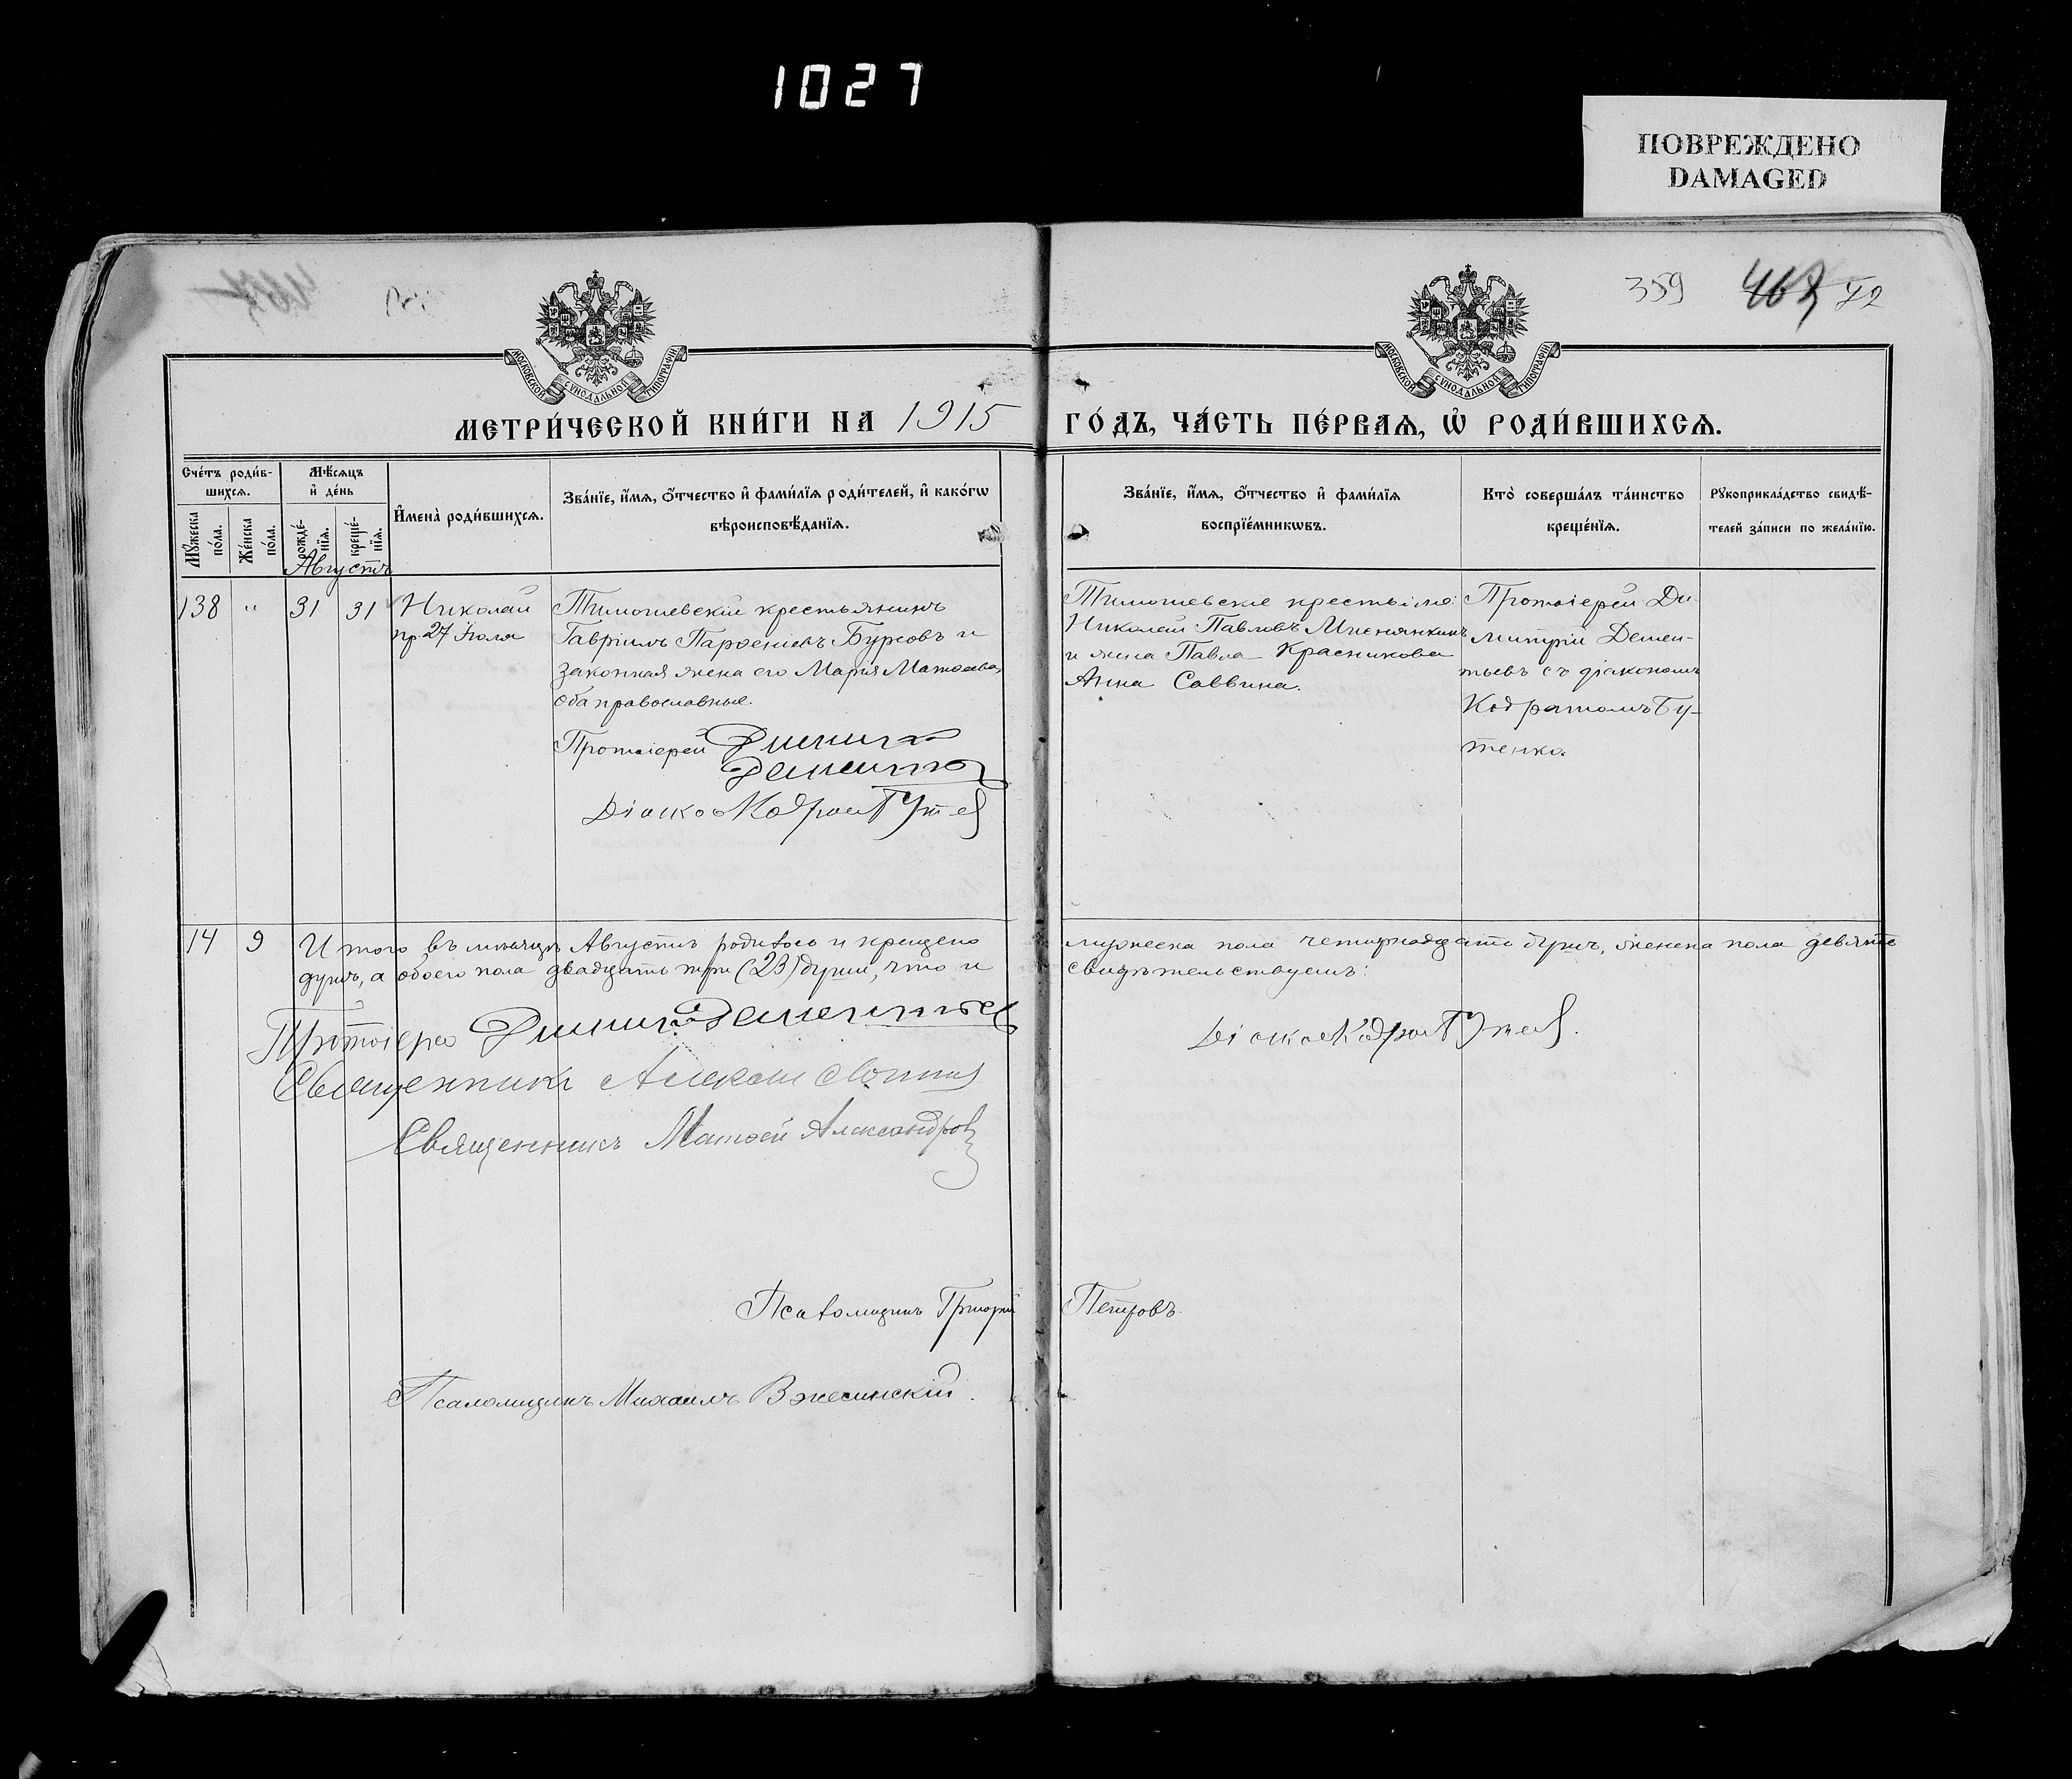 1027
ПОВРЕЖДЕНО
DAMAGED
359 467 42
МОСКОВСКОЙ СѴНОДАЛЬНОЙ ТИПОГРАФІИ
МОСКОВСКОЙ СѴНОДАЛЬНОЙ ТИПОГРАФІИ
МЕТРИ́ЧЕСКОЙ КНИ́ГИ НА 1915 ГО́ДЪ, ЧА́СТЬ ПЕ́РВАѦ, Ѡ РОДИ́ВШИХСѦ.
Сче́тъ роди́в-
шихсѧ.
Мꙋ́жеска по́ла.
Же́нска по́ла.
Мѣ́сѧцъ
и де́нь
рожде́-
нїѧ.
креще́-
нїѧ.
Имена̀ роди́вшихсѧ.
Зва́нїе, и́мѧ, о́тчество и фами́лїѧ роди́телей, и како́гѡ
вѣроисповѣ́данїѧ.
Зва́нїе, и́мѧ, о́тчество и фами́лїѧ
воспрїе́мникѡвъ.
Кто̀ соверша́лъ та́инство
креще́нїѧ.
Рꙋкоприкла́дство свидѣ́-
телей за́писи по жела́нїю.
Августъ
138 " 31 31
Николай
пр. 27 Іюля
Тимошевскій крестьянинъ
Гавріилъ Парѳеніевъ Бурсовъ и
законная жена его Марія Матѳеева,
оба православные.
Протоіерей Димитрій
Дементьев
Діакон Кодрат Бутен
Тимошевскіе крестьяне:
Николай Павловъ
и жена Павла Красникова
Анна Саввина.
Протоіерей Ди-
митрій Демен-
тьевъ съ діакономъ
Кодратомъ Бу-
тенко.
14 9 Итого въ мѣсяцѣ Августѣ родилось и крещено мужеска пола четырнадцать душъ, женска пола девять
душъ, а обоего пола двадцать три (23) души, что и свидѣтельствуемъ:
Протоіерей Димитрій Дементьев
Діакон Кодрат Бутен.
Священникъ Алексій
Священникъ Матѳей Александров
Псаломщикъ Григорій Петровъ.
Псаломщикъ Михаилъ Вжесинскій.